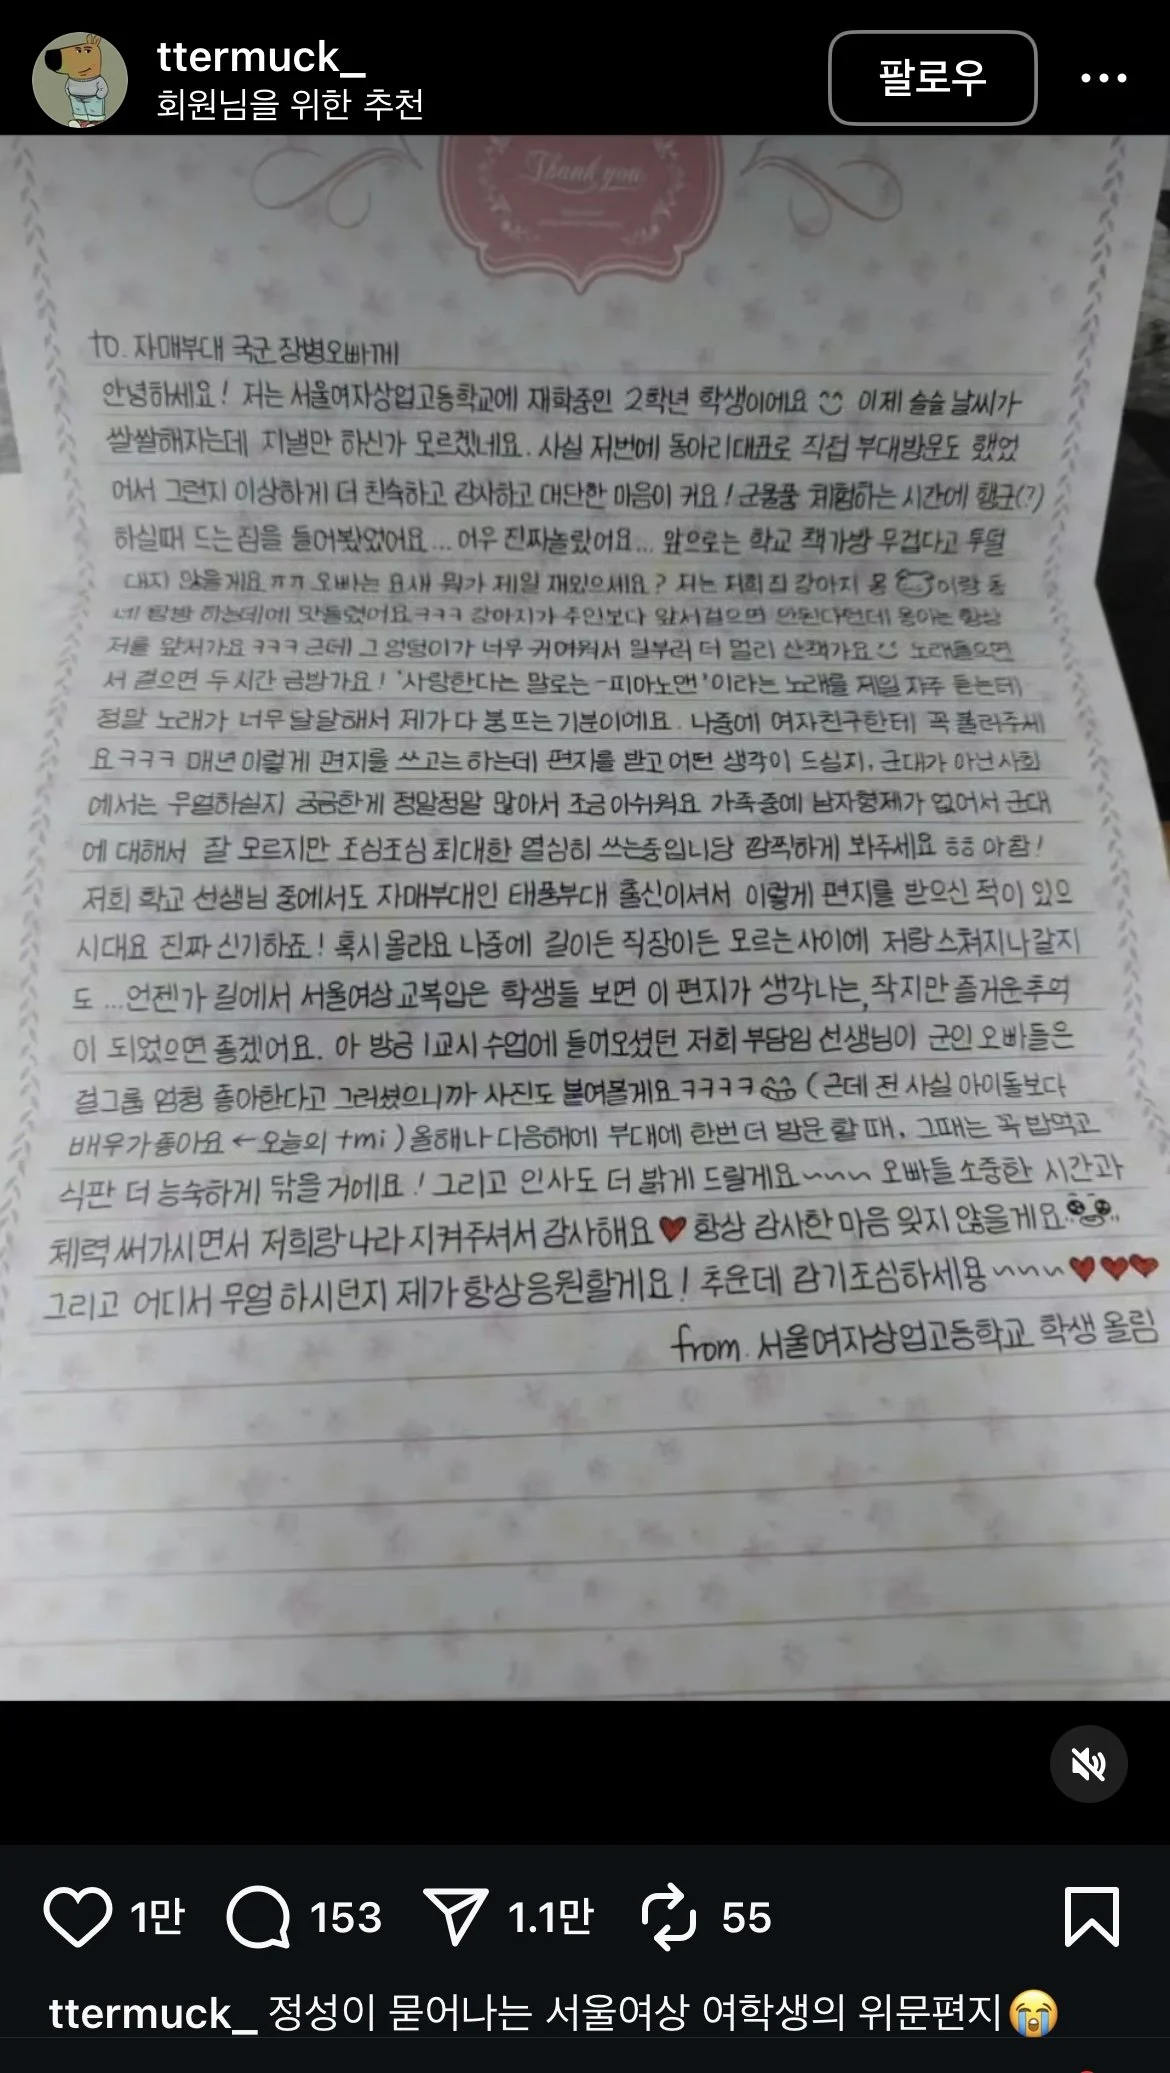 ttermuck_
회원님을 위한 추천
팔로우
Thank you
to. 자매부대 국군장병오빠께
안녕하세요! 저는 서울여자상업고등학교에 재학중인 2학년 학생이에요 이제 슬슬 날씨가
쌀쌀해지는데 지낼만 하신가 모르겠네요. 사실 저번에 동아리대표로 직접 부대방문도 했었
어서 그런지 이상하게 더 친숙하고 감사하고 대단한 마음이 커요! 군물품 체험하는 시간에 행군(?)
하실때 드는짐을 들어봤었어요... 어우 진짜놀랐어요... 앞으로는 학교 책가방 무겁다고 투덜
대지 않을게요ㅠㅠ 오빠는 요새 뭐가 제일 재밌으세요? 저는 저희집 강아지 몽이랑 동
네 탐방 하는데에 맛들렸어요ㅋㅋㅋ 강아지가 주인보다 앞서걸으면 안된다던데 몽이는 항상
저를 앞서가요ㅋㅋㅋ 근데 그 엉덩이가 너무 귀여워서 일부러 더 멀리 산책가요 노래들으면
서 걸으면 두시간 금방가요! '사랑한다는 말로는-피아노맨'이라는 노래를 제일 자주 듣는데
정말 노래가 너무달달해서 제가다 붕뜨는기분이에요. 나중에 여자친구한테 꼭 불러주세
요ㅋㅋㅋ 매년이렇게 편지를 쓰고는하는데 편지를 받고어떤 생각이 드실지, 군대가 아닌사회
에서는 무얼하실지 궁금한게 정말정말 많아서 조금아쉬워요 가족중에 남자형제가 없어서 군대
에 대해서 잘 모르지만 조심조심최대한 열심히 쓰는중입니당 깜찍하게 봐주세요ㅎㅎ 아참!
저희 학교 선생님 중에서도 자매부대인 태풍부대 출신이셔서 이렇게 편지를 받으신적이 있으
시대요 진짜신기하죠! 혹시몰라요나중에 길이든 직장이든 모르는사이에 저랑스쳐지나갈지
도 ...언젠가 길에서 서울여상교복입은 학생들 보면 이 편지가 생각나는, 작지만 즐거운추억
이 되었으면 좋겠어요. 아 방금 1교시수업에 들어오셨던 저희 부담임 선생님이 군인오빠들은
걸그룹 엄청 좋아한다고 그러셨으니까 사진도 붙여볼게요ㅋㅋㅋㅋ (근데 전사실 아이돌보다
배우가좋아요 ← 오늘의 tmi) 올해나다음해에 부대에 한번더 방문할때, 그때는 꼭밥먹고
식판 더 능숙하게 닦을거에요! 그리고 인사도 더 밝게 드릴게요~~~ 오빠들소중한 시간과
체력써가시면서 저희랑나라지켜주셔서감사해요♥ 항상 감사한마음잊지 않을게요
그리고 어디서 무얼하시던지 제가항상응원할게요! 추운데 감기조심하세용~~~♥♥♥
from. 서울여자상업고등학교 학생올림
1만
153
1.1만
55
ttermuck_ 정성이 묻어나는 서울여상 여학생의 위문편지😭